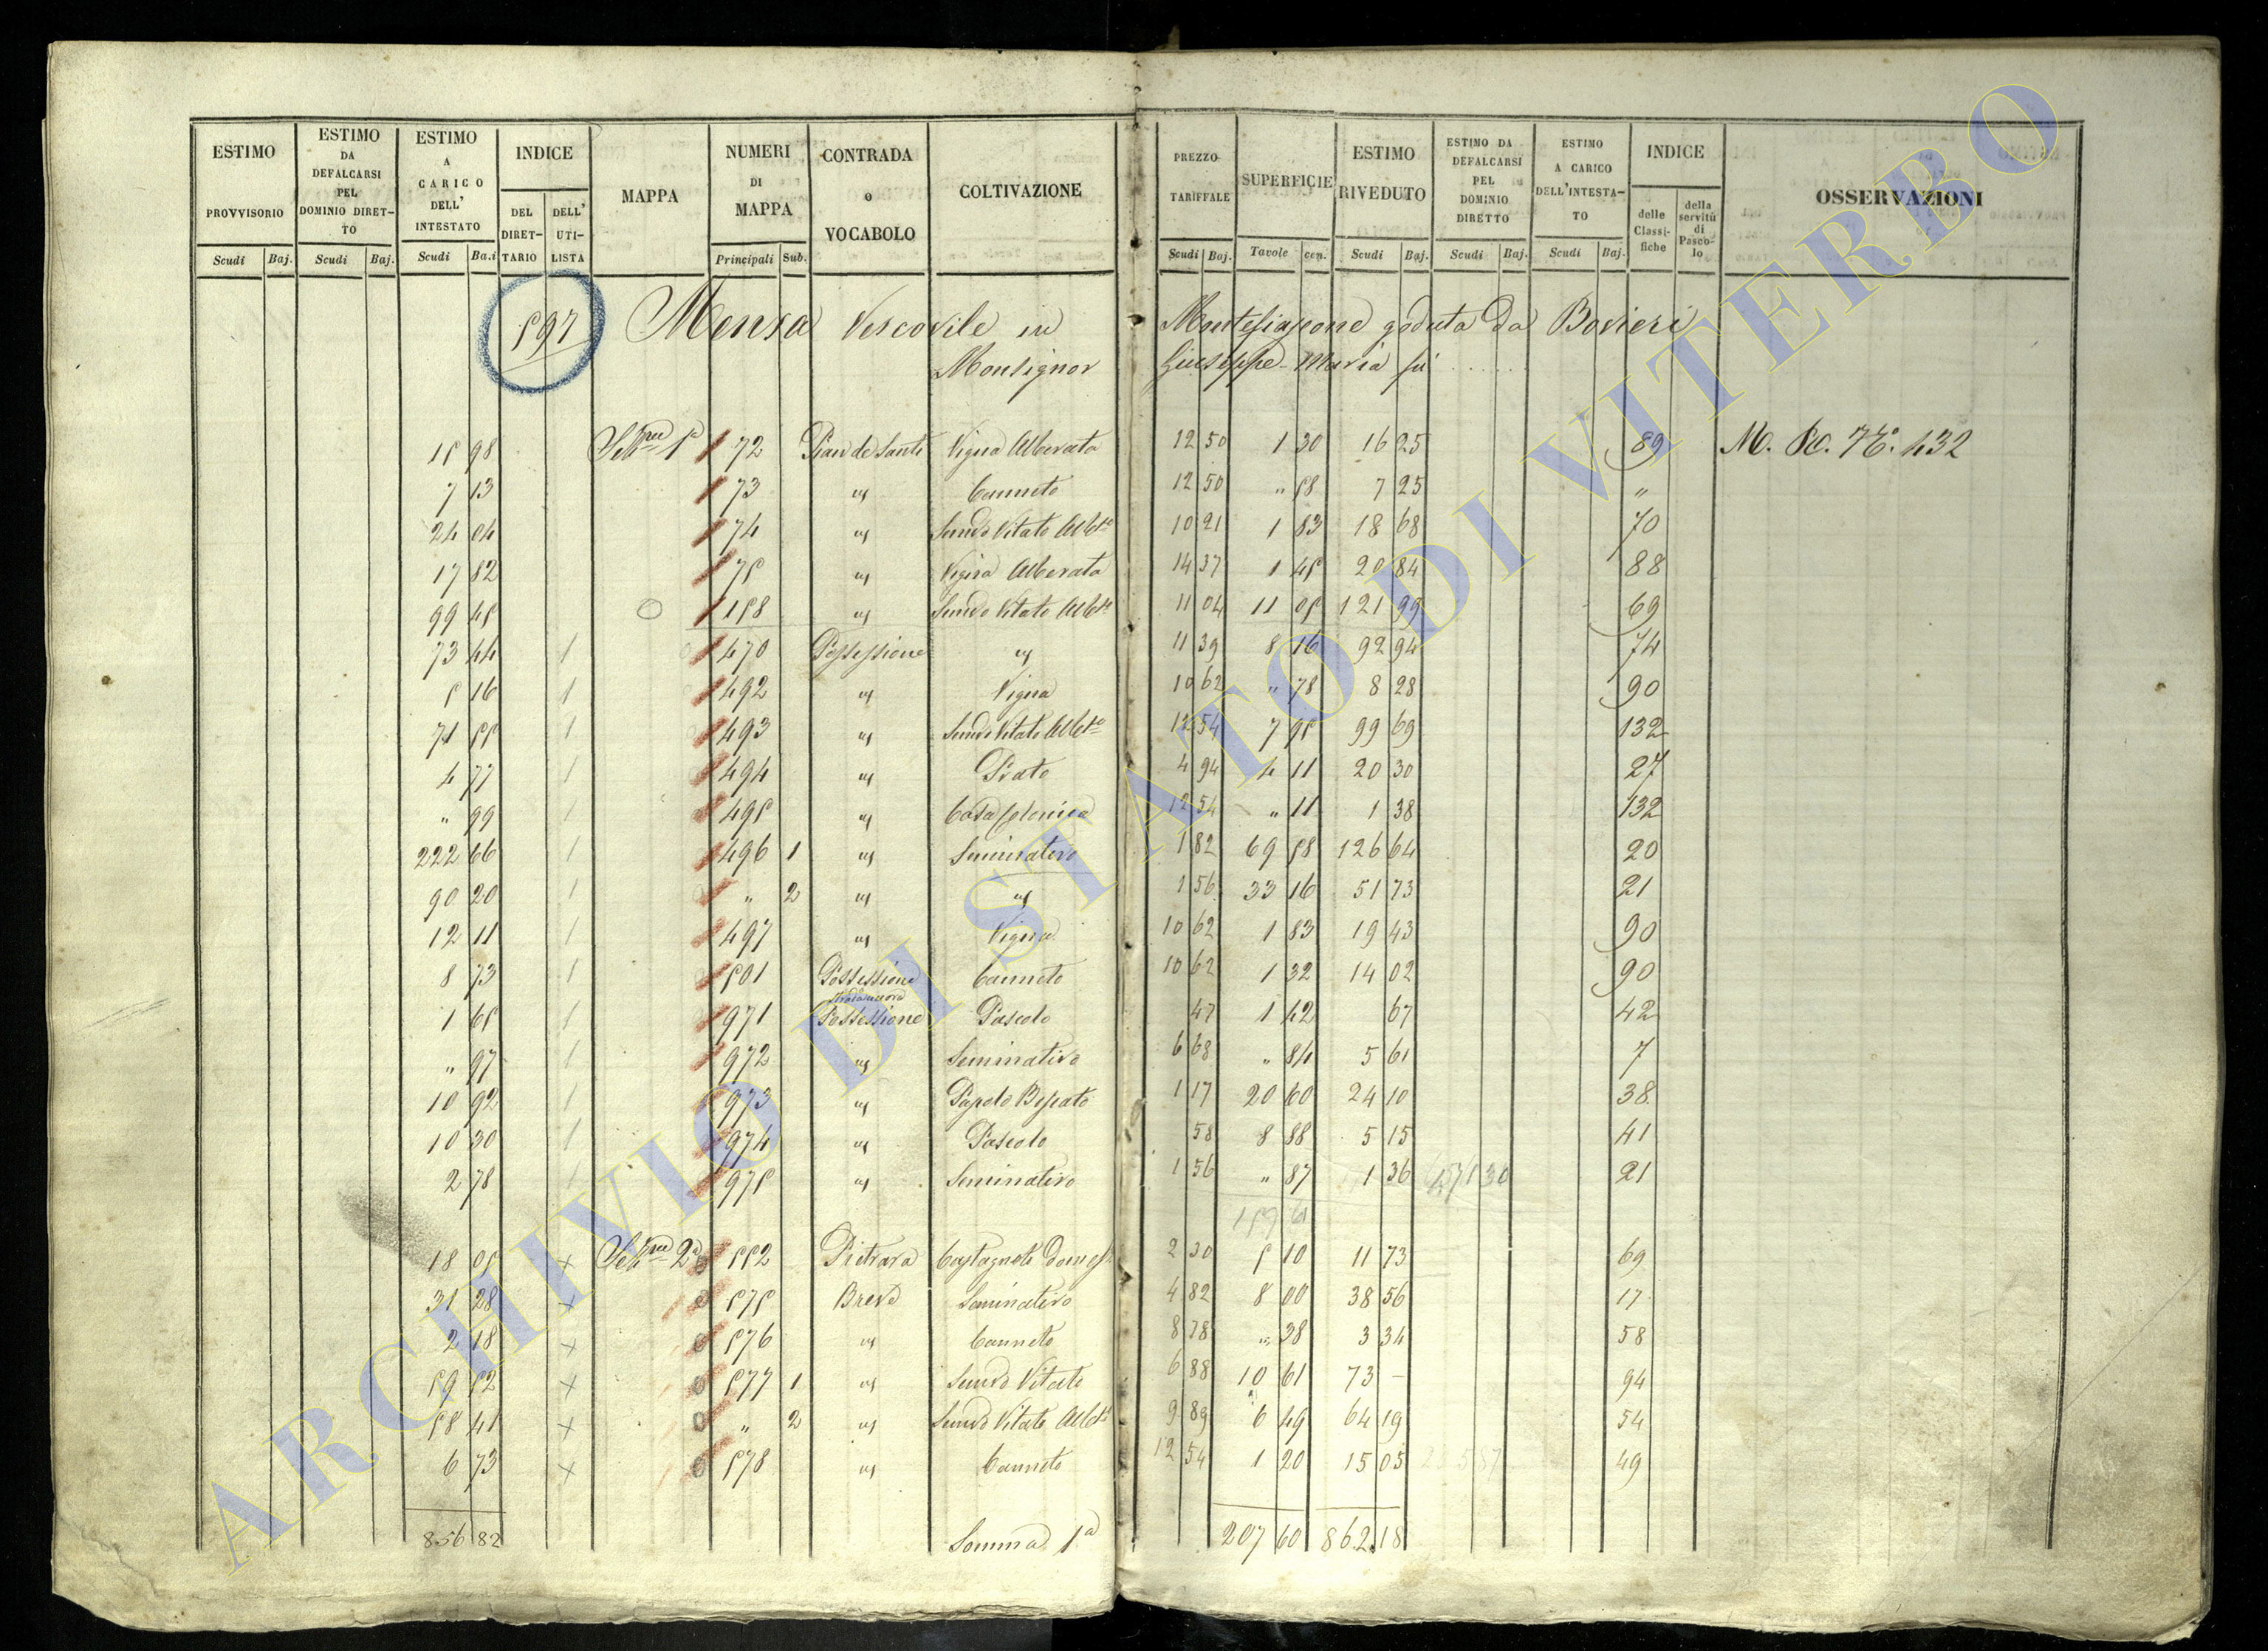 ESTIMO PROVVISORIO Scudi Baj.
ESTIMO DA DEFALCARSI PEL DOMINIO DIRETTO Scudi Baj.
ESTIMO A CARICO DELL' INTESTATO Scudi Ba.i
INDICE DEL DIRETTARIO DELL' UTILISTA
MAPPA
NUMERI DI MAPPA Principali Sub.
CONTRADA o VOCABOLO
COLTIVAZIONE
PREZZO TARIFFALE Scudi Baj.
SUPERFICIE Tavole cen.
ESTIMO RIVEDUTO Scudi Baj.
ESTIMO DA DEFALCARSI PEL DOMINIO DIRETTO Scudi Baj.
ESTIMO A CARICO DELL'INTESTATO Scudi Baj.
INDICE delle Classifiche della servitù di Pascolo
OSSERVAZIONI
597 Mensa Vescovile in Montefiascone goduta da Bovieri
Monsignor Giuseppe Maria fù
15 98 Sett.ne 1ª 72 Pian de Santi Vigna Alberata 12 50 1 30 16 25 89 432
7 13 73 " Canneto 12 50 " 58 7 25 "
24 04 74 " Semvo Vitato Albto 10 21 1 83 18 68 70
17 82 75 " Vigna Alberata 14 37 1 45 20 84 88
99 45 158 " Semvo Vitato Albto 11 04 11 05 121 99 69
73 44 1 470 Possessione " 11 39 8 16 92 94 74
5 16 1 492 " Vigna 10 62 " 78 8 28 90
71 55 1 493 " Semvo Vitato Albto 12 54 7 95 99 69 132
4 77 1 494 " Prato 4 94 4 11 20 30 27
" 99 1 495 " Casa Colonica 12 54 " 11 1 38 132
222 66 1 496 1 " Seminativo 1 82 69 58 126 64 20
90 20 1 " 2 " " 1 56 33 16 51 73 21
12 11 1 497 " Vigna 10 62 1 83 19 43 90
8 73 1 501 Possessione Canneto 10 62 1 32 14 02 90
Strada nuova
1 65 1 971 Possessione Pascolo 47 1 42 67 42
" 97 1 972 " Seminativo 6 68 " 84 5 61 7
10 92 1 973 " Pascolo Boscato 1 17 20 60 24 10 38
10 30 1 974 " Pascolo 58 8 88 5 15 41
2 78 1 975 " Seminativo 1 56 " 87 1 36 21
18 05 x Sett.ne 2ª 552 Pietrara Castagneto Domes 2 30 5 10 11 73 69
31 28 x 575 Seminativo 4 82 8 00 38 56 17
2 18 x 576 " Canneto 8 78 " 38 3 34 58
59 52 x 577 1 " Semvo Vitato 6 88 10 61 73 — 94
58 41 x " 2 " Semvo Vitato Albto 9 89 6 49 64 19 54
6 73 x 578 " Canneto 12 54 1 20 15 05 49
856 82 Somma 1ª 207 60 862 18
ARCHIVIO DI STATO DI VITERBO